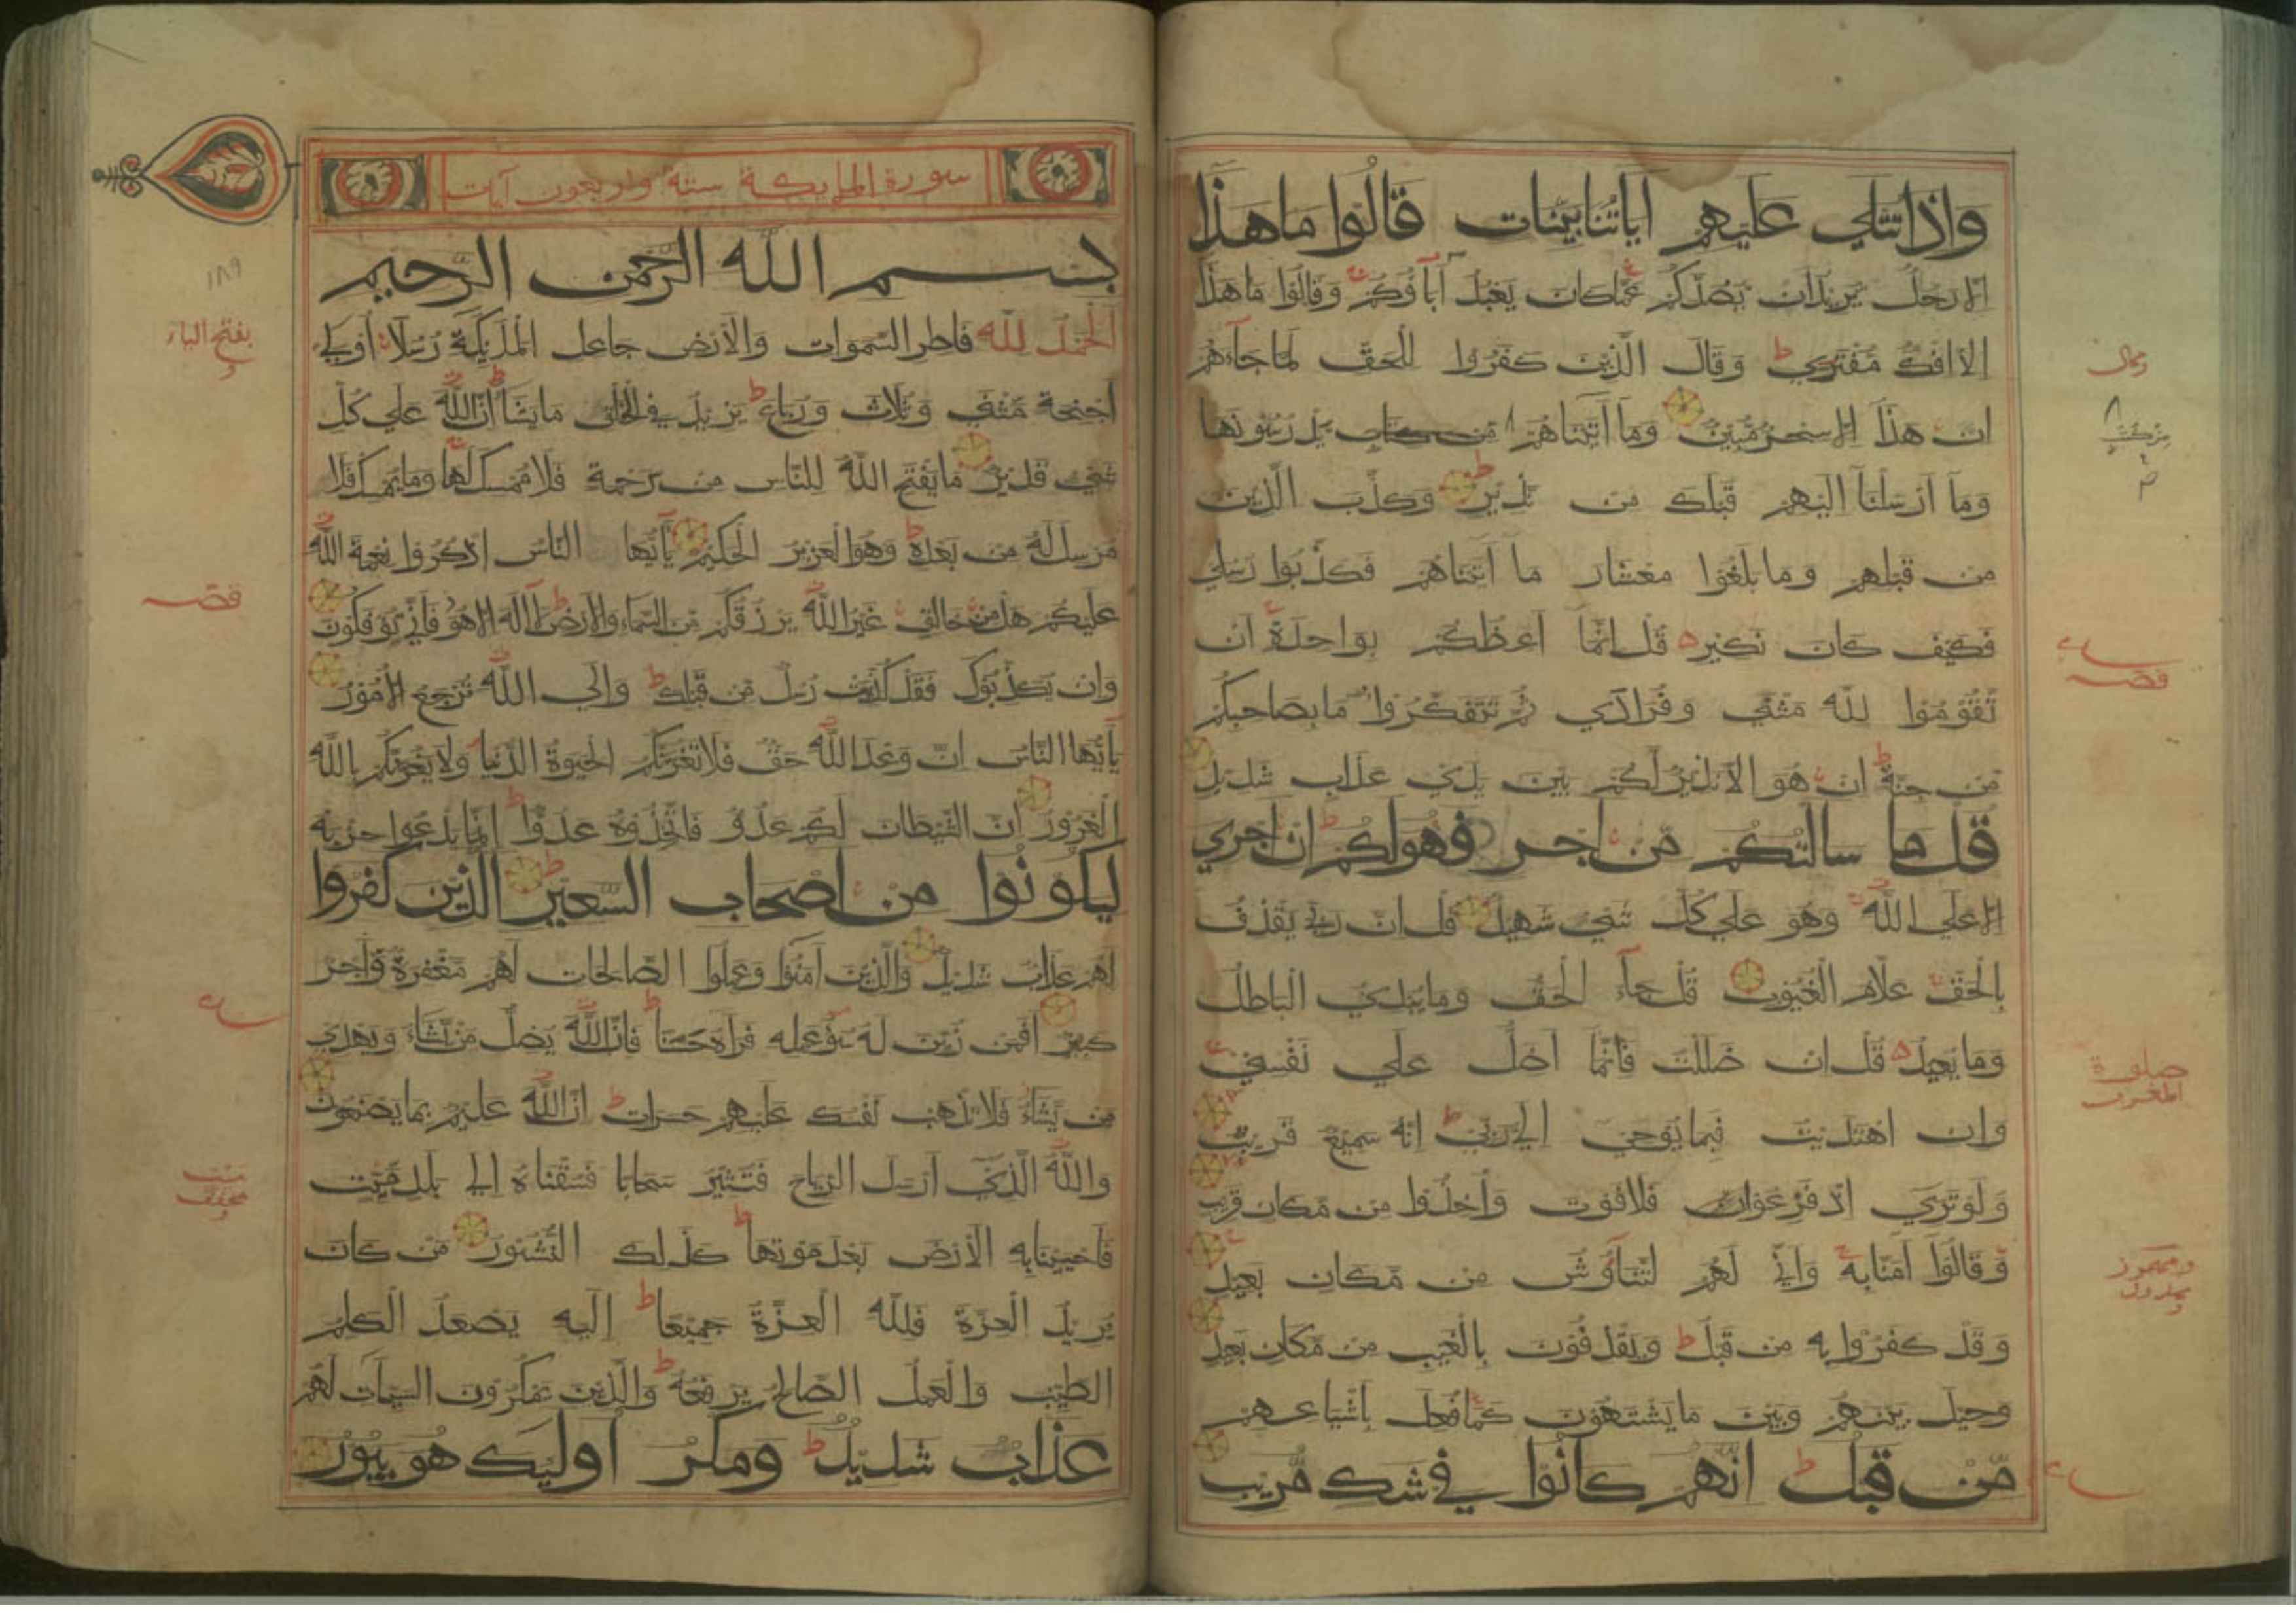 واذا تتلي عليهم اياتنا بينات قالوا ما هذا
الا رجل يريد ان يصدكم عما كان يعبد آباؤكم وقالوا ما هذا
الا افك مفتري ط وقال الذين كفروا للحق لما جاءهم
ان هذا الا سحر مبين وما آتيناهم من كتب يدرسونها
وما ارسلنا اليهم قبلك من نذير ط وكذب الذين
من قبلهم وما بلغوا معشار ما آتيناهم فكذبوا رسلي
فكيف كان نكير قل انما اعظكم بواحدة ان
تقوموا لله مثني وفرادي ثم تتفكروا ما بصاحبكم
من جنة ط ان هو الا نذير لكم بين يدي عذاب شديد
قل ما سالتكم من اجر فهو لكم ط ان اجري
الا علي الله وهو علي كل شئ شهيد قل ان ربي يقذف
بالحق علام الغيوب قل جاء الحق وما يبدئ الباطل
وما يعيد قل ان ضللت فانما اضل علي نفسي
وان اهتديت فبما يوحي الي ربي ط انه سميع قريب
ولو تري اذ فزعوا فلا فوت واخذوا من مكان قريب
وقالوا آمنا به واني لهم التناوش من مكان بعيد
وقد كفروا به من قبل ط ويقذفون بالغيب من مكان بعيد
وحيل بينهم وبين ما يشتهون كما فعل باشياعهم
من قبل ط انهم كانوا في شك مريب
صلوة
المغرب
سورة الملايكة ستة واربعون آيات
بسم الله الرحمن الرحيم
الحمد لله فاطر السموات والارض جاعل الملايكة رسلا اولي
اجنحة مثني وثلاث ورباع ط يزيد في الخلق ما يشاء ط ان الله علي كل
شئ قدير ما يفتح الله للناس من رحمة فلا ممسك لها وما يمسك فلا
مرسل له من بعده ط وهو العزيز الحكيم يآ ايها الناس اذكروا نعمة الله
عليكم هل من خالق غير الله يرزقكم من السماء والارض ط لا اله الا هو فاني تؤفكون
وان يكذبوك فقد كذبت رسل من قبلك ط والي الله ترجع الامور
يآ ايها الناس ان وعد الله حق فلا تغرنكم الحيوة الدنيا ولا يغرنكم بالله
الغرور ان الشيطان لكم عدو فاتخذوه عدوا ط انما يدعوا حزبه
ليكونوا من اصحاب السعير ط الذين كفروا
لهم عذاب شديد والذين آمنوا وعملوا الصالحات لهم مغفرة واجر
كبير افمن زين له سوء عمله فراه حسنا ط فان الله يضل من يشاء ويهدي
من يشاء فلا تذهب نفسك عليهم حسرات ط ان الله عليم بما يصنعون
والله الذي ارسل الرياح فتثير سحابا فسقناه الي بلد ميت
فاحيينا به الارض بعد موتها ط كذلك النشور من كان
يريد العزة فلله العزة جميعا ط اليه يصعد الكلم
الطيب والعمل الصالح يرفعه ط والذين يمكرون السيئات لهم
عذاب شديد ط ومكر اوليك هو يبور
١٨٩
بفتح الياء